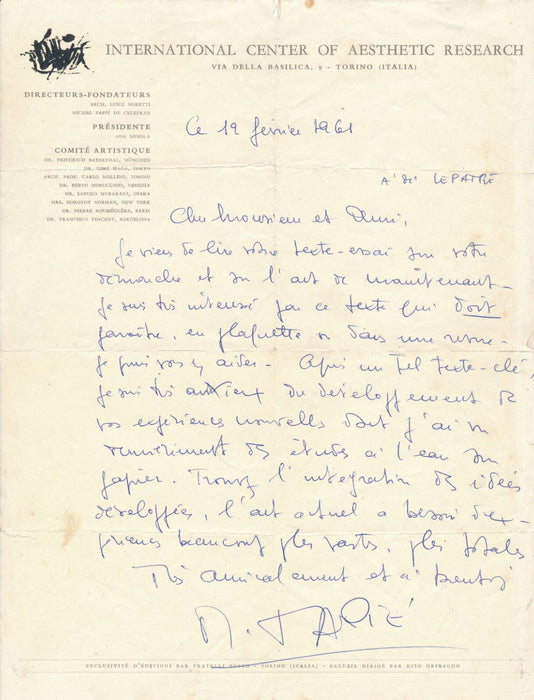 INTERNATIONAL CENTER OF AESTHETIC RESEARCH
VIA DELLA BASILICA, 9 - TORINO (ITALIA)
DIRECTEURS-FONDATEURS
ARCH. LUIGI MORETTI
MICHEL TAPIÉ DE CELEYRAN
PRÉSIDENTE
ADA MINOLA
COMITÉ ARTISTIQUE
DR. FRIEDRICH BAYERTHAL, MÜNCHEN
DR. TORE HAGA, TOKYO
ARCH. PROF. CARLO MOLLINO, TORINO
DR. BERTO MORUCCHIO, VENEZIA
MR. SABURO MURAKAMI, OSAKA
MRS. DOROTHY NORMAN, NEW YORK
DR. PIERRE ROUMÉGUÈRE, PARIS
DR. FRANCISCO VINCENT, BARCELONA
Ce 19 février 1961
A
Cher Monsieur et Ami,
Je viens de lire votre texte-essai sur votre
démarche et sur l'art de maintenant-
Je suis très intéressé par ce texte qui doit
paraître, en plaquette ou dans une revue-
Je puis vous y aider - Après un tel texte-clé,
je suis très anxieux du développement de
vos expériences nouvelles dont j'ai vu
dernièrement des études à l'eau sur
papier. Trouvez l'intégration des idées
développées, l'art actuel a besoin d'ex-
périences beaucoup plus vastes, plus totales
Très amicalement et à bientôt
M. TAPIÉ
EXCLUSIVITÉ D'ÉDITIONS PAR FRATELLI POZZO - TORINO (ITALIA) - RECUEIL DIRIGÉ PAR EZIO GRIBAUDO